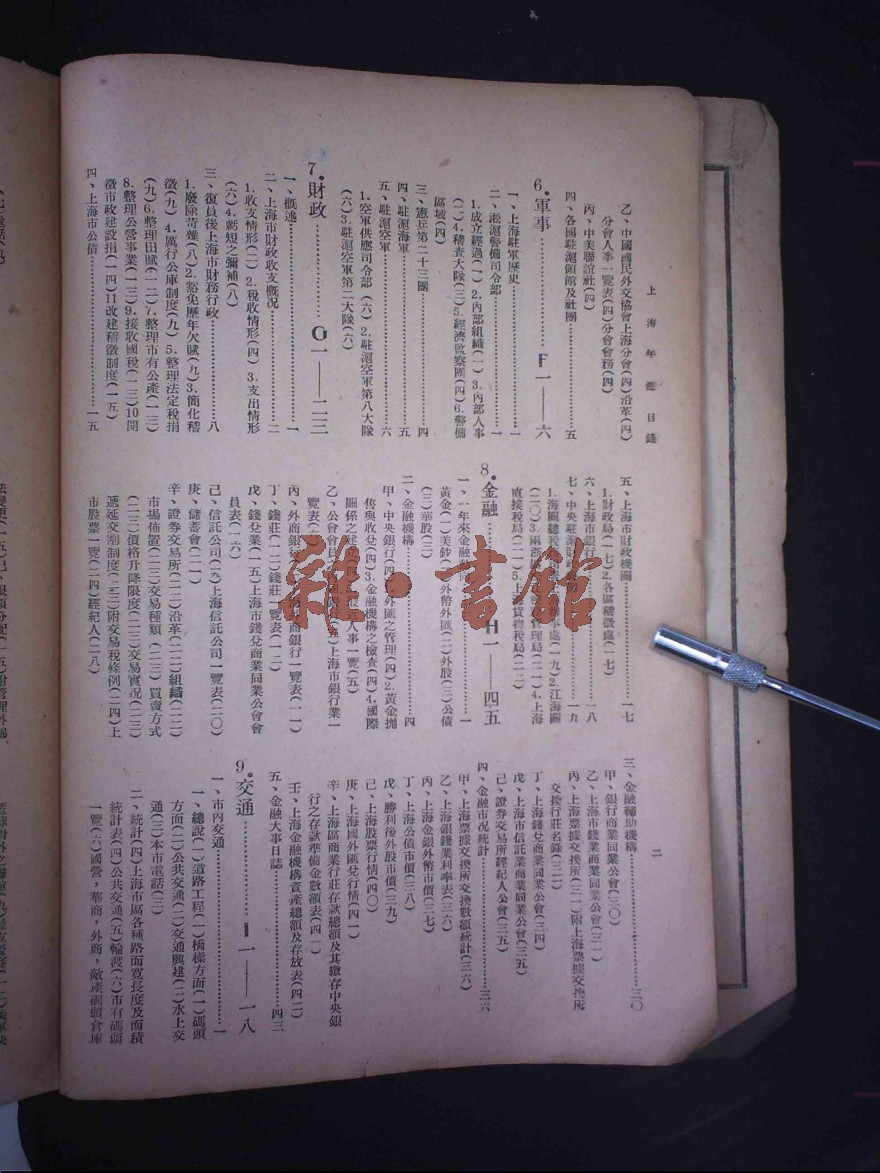 上海年鑑目錄
二
乙、中國國民外交協會上海分會(四)沿革(四)
分會人事一覽表(四)分會會務(四)
丙、中美聯誼社(四)
四、各國駐滬領館及社團……五
6.軍事……F一——六
一、上海駐軍歷史……一
二、淞滬警備司令部……一
1.成立經過(一)2.內部組織(一)3.內部人事
(二)4.稽查大隊(三)5.經濟監察團(四)6.警備
區域(四)
三、憲兵第二十三團……四
四、駐滬海軍……五
五、駐滬空軍……六
1.空軍供應司令部(六)2.駐滬空軍第八大隊
(六)3.駐滬空軍第二大隊(六)
7.財政……G一——二三
一、概述……一
二、上海市財政收支概况……二
1.收支情形(二)2.稅收情形(四)3.支出情形
(六)4.虧短之彌補(八)
三、復員後上海市財務行政……八
1.廢除苛雜(八)2.豁免歷年欠賦(九)3.簡化稽
徵(九)4.厲行公庫制度(九)5.整理法定稅捐
(九)6.整理田賦(一二)7.整理市有公產(一三)
8.整理公營事業(一三)9.接收國稅(一三)10開
徵市政建設捐(一四)11改建稽徵制度(一五)
四、上海市公債……一五
五、上海市財政機關……一七
1.財政局(一七)2.各區稽徵處(一七)
六、上海市銀行……一八
七、中央駐滬財政……一九
1.海關總稅務司……處(一九)2.江海關
(二〇)3.兩浙……管理局(二一)4.上海
直接稅局(二一)5.上海貨物稅局(二二)
8.金融……H一——四五
一、一年來金融……一
黃金(一)美鈔(……)外幣外匯(二)外股(三)公債
(三)華股(三)
二、金融機構……四
甲、中央銀行(四)……外匯之管理(四)2.黃金拋
售與收兌(四)3.金融機構之檢查(四)4.國際
關係之建立……人事一覽(五)
乙、公會會員……上海市銀行業一
覽表(……)
丙、外商銀行……外商銀行一覽表(一一)
丁、錢莊(一二)錢莊一覽表(一二)
戊、錢兌業(一五)上海市錢兌商業同業公會會
員表(一六)
己、信託公司(一九)上海信託公司一覽表(二〇)
庚、儲蓄會(二一)
辛、證券交易所(二二)沿革(二二)組織(二二)
市場佈置(二三)交易種類(二三)買賣方式
(二三)價格升降限度(二三)交易實况(二三)
遞延交割制度(二三)附交易稅條例(二四)上
市股票一覽(二四)經紀人(二八)
三、金融輔助機構……三〇
甲、銀行商業同業公會(三〇)
乙、上海市錢業商業同業公會(三一)
丙、上海票據交換所(三一)附上海票據交換所
交換行莊名錄(三二)
丁、上海錢兌商業同業公會(三四)
戊、上海市信託業商業同業公會(三五)
己、證券交易所經紀人公會(三五)
四、金融市况統計……三六
甲、上海票據交換所交換數額統計(三六)
乙、上海銀錢業利率表(三六)
丙、上海金銀外幣市價(三七)
丁、上海公債市價(三八)
戊、勝利後外股市價(三九)
己、上海股票行情(四〇)
庚、上海國外匯兌行情(四一)
辛、上海區商業行莊存款總額及其繳存中央銀
行之存款準備金數額表(四一)
壬、上海金融機構資產總額及存放表(四二)
五、金融大事日誌……四三
9.交通……I一——一八
一、市內交通……一
一、總說(一)道路工程(一)橋樑方面(一)碼頭
方面(二)公共交通(二)交通興建(二)水上交
通(三)本市電話(三)
二、統計(四)上海市區各種路面寬長度及面積
統計表(四)公共交通(五)輪渡(六)市有碼頭
一覽(六)國營，華商，外商，敵產碼頭倉庫